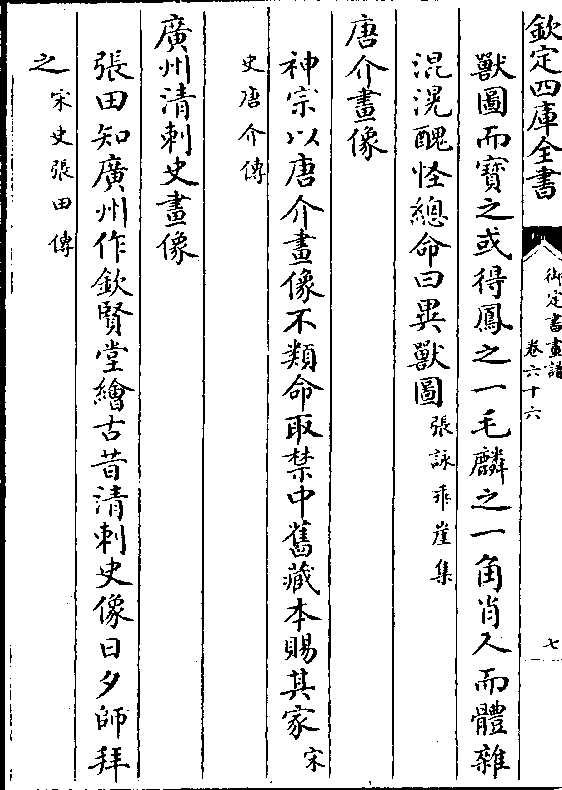 欽定四庫全書
御定書畫譜
卷六十六
七
獸圖而寶之或得鳳之一毛麟之一角肖人而體雜
混滉醜怪總命曰異獸圖張詠乖崖集
唐介畫像
神宗以唐介畫像不類命取禁中舊藏本賜其家宋
史唐介傳
廣州清刺史畫像
張田知廣州作欽賢堂繪古昔清刺史像日夕師拜
之宋史張田傳